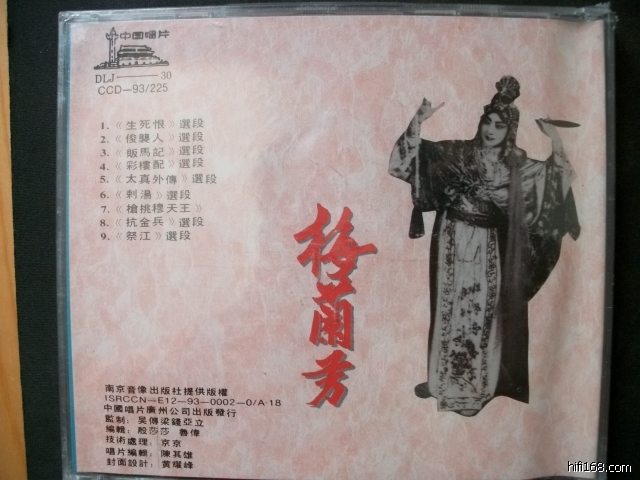 中國唱片
DLJ——30
CCD—93/225
1.《生死恨》選段
2.《俊襲人》選段
3.《販馬記》選段
4.《彩樓配》選段
5.《太真外傳》選段
6.《刺湯》選段
7.《槍挑穆天王》
8.《抗金兵》選段
9.《祭江》選段
梅蘭芳
南京音像出版社提供版權
ISRCCN—E12—93—0002—0/A·18
中國唱片廣州公司出版發行
監制：吴傳梁錢亞立
編輯：殷莎莎 魯偉
技術處理：京京
唱片編輯：陳其雄
封面設計：黄燦峰
hifi168.com